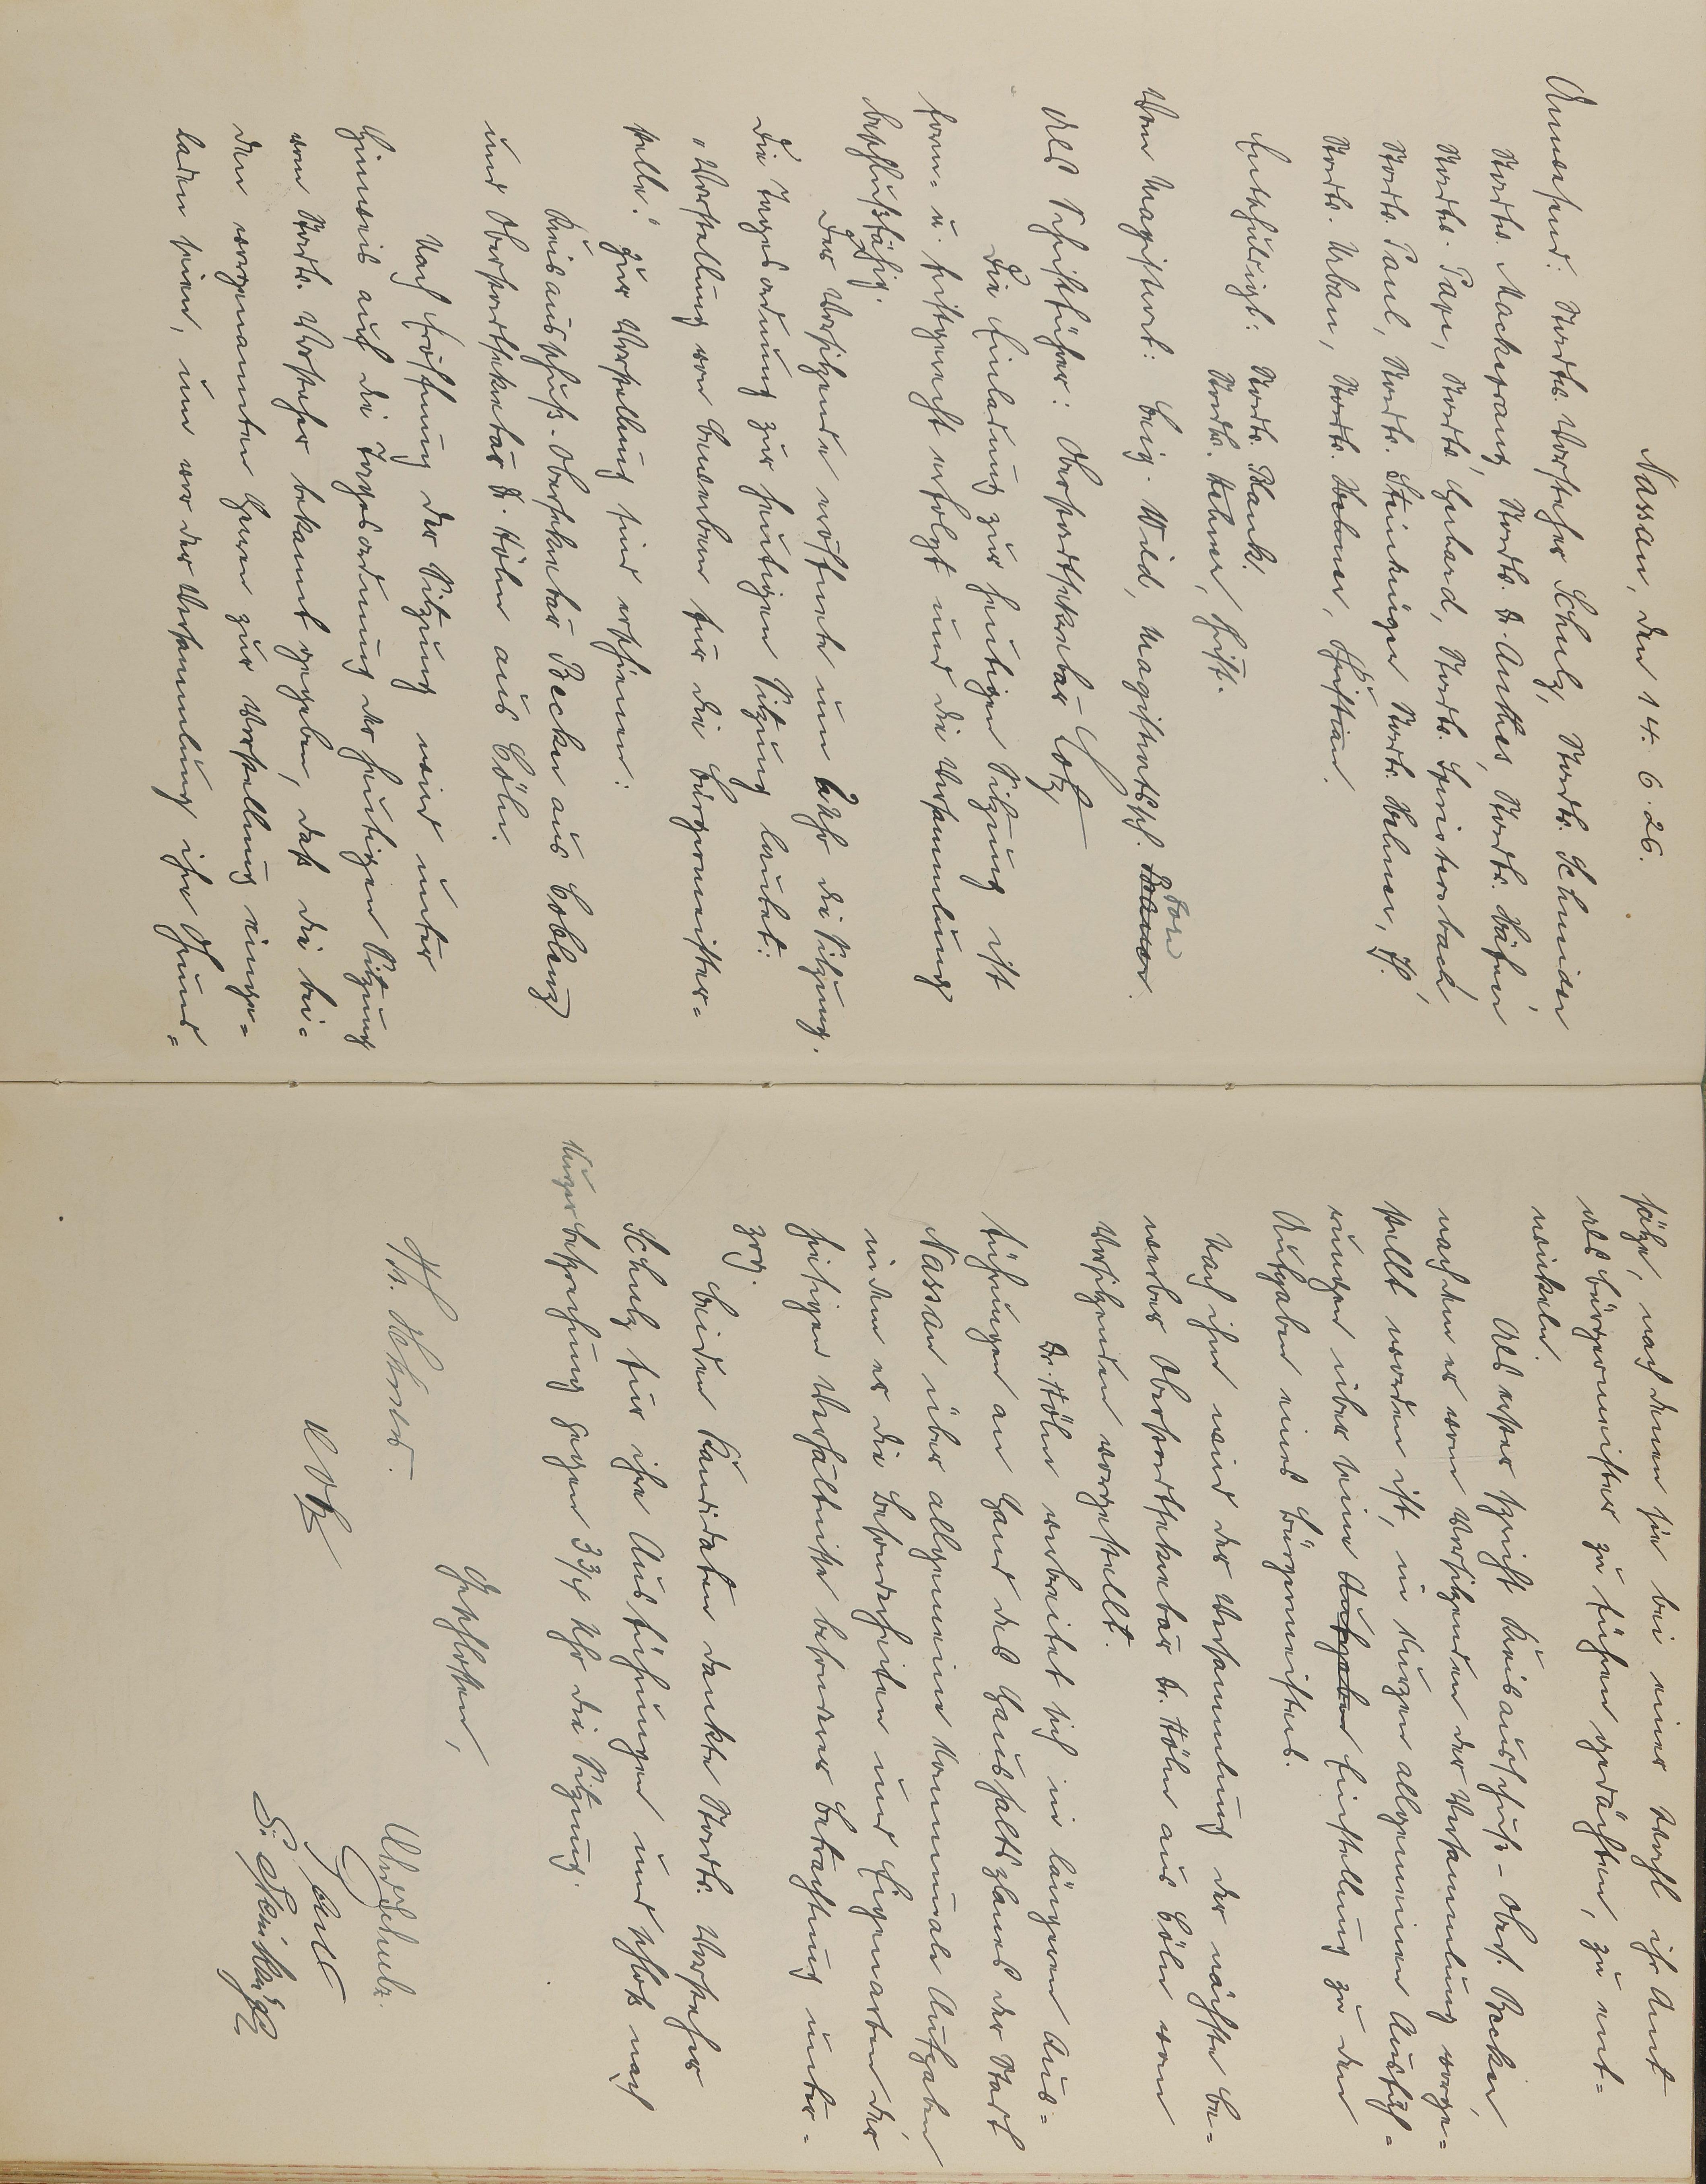 Nassau, den 14. 6. 26.
Anwesend: Stadtv. Vorsteher Schulz, Stadtv. Schmieder
Stadtv. Mackeprang, Stadtv. Dr. Anthes, Stadtv.
Stadtv. Pape, Stadtv. Gerhard, Stadtv. Heinsterbach,
Stadtv. Paul, Stadtv. Steinhäuser, Stadtv. Hehner,
Stadtv. Urban, Stadtv. Hehner, Christian.
Entschuldigt: Stadtv. Plank.
Stadtv. Hehner, Christ.
Vom Magistrat: Beig. Wild, Magistratssch. Born
Als Schriftführer: Oberstadtsekretär Lotz
Die Einladung zur heutigen Sitzung ist
form- u. fristgerecht erfolgt und die Versammlung
beschlußfähig.
Der Vorsitzende eröffnete um 2 Uhr die Sitzung.
Die Tagesordnung zur heutigen Sitzung lautet:
"Vorstellung von Bewerbern für die Bürgermeister-
stelle."
Zur Vorstellung sind erschienen:
Kreisausschuß-Obersekretär Becker aus Coblenz
und Oberstadtsekretär Dr. Höhn aus Cöln.
Nach Eröffnung der Sitzung wird unter
Hinweis auf die Tagesordnung der heutigen Sitzung
vom Stadtv. Vorsteher bekannt gegeben, daß die bei-
den vorgenannten Herren zur Vorstellung einge-
laden seien, um vor der Versammlung ihre Grund-
sätze, nach denen sie bei einer Wahl ihr Amt
als Bürgermeister zu führen gedächten, zu ent-
wickeln.
Als erster spricht Kreisausschuß-Obers. Becker,
nachdem er vom Vorsitzenden der Versammlung vorge-
stellt worden ist, in kurzen allgemeinen Ausfüh-
rungen über seine Aufgaben Einstellung zu den
Aufgaben eines Bürgermeisters.
Nach ihm wird der Versammlung der nächste Be-
werber Oberstadtsekretär Dr. Höhn aus Cöln vom
Vorsitzenden vorgestellt.
Dr. Höhn verbreitet sich in längeren Aus-
führungen an Hand des Haushaltsplanes der Stadt
Nassau über allgemeine kommunale Aufgaben
indem er die Besonderheiten und Eigenarten der
hiesigen Verhältnisse besonderer Betrachtung unter-
zog.
Beiden Kandidaten dankte Stadtv. Vorsteher
Schulz für ihre Ausführungen und schloß nach
kurzer Besprechung gegen 3 3/4 Uhr die Sitzung.
Geschlossen,
W. Schulz.
Hr. Hehner.
Paul
Lotz
S. Steinhäuser